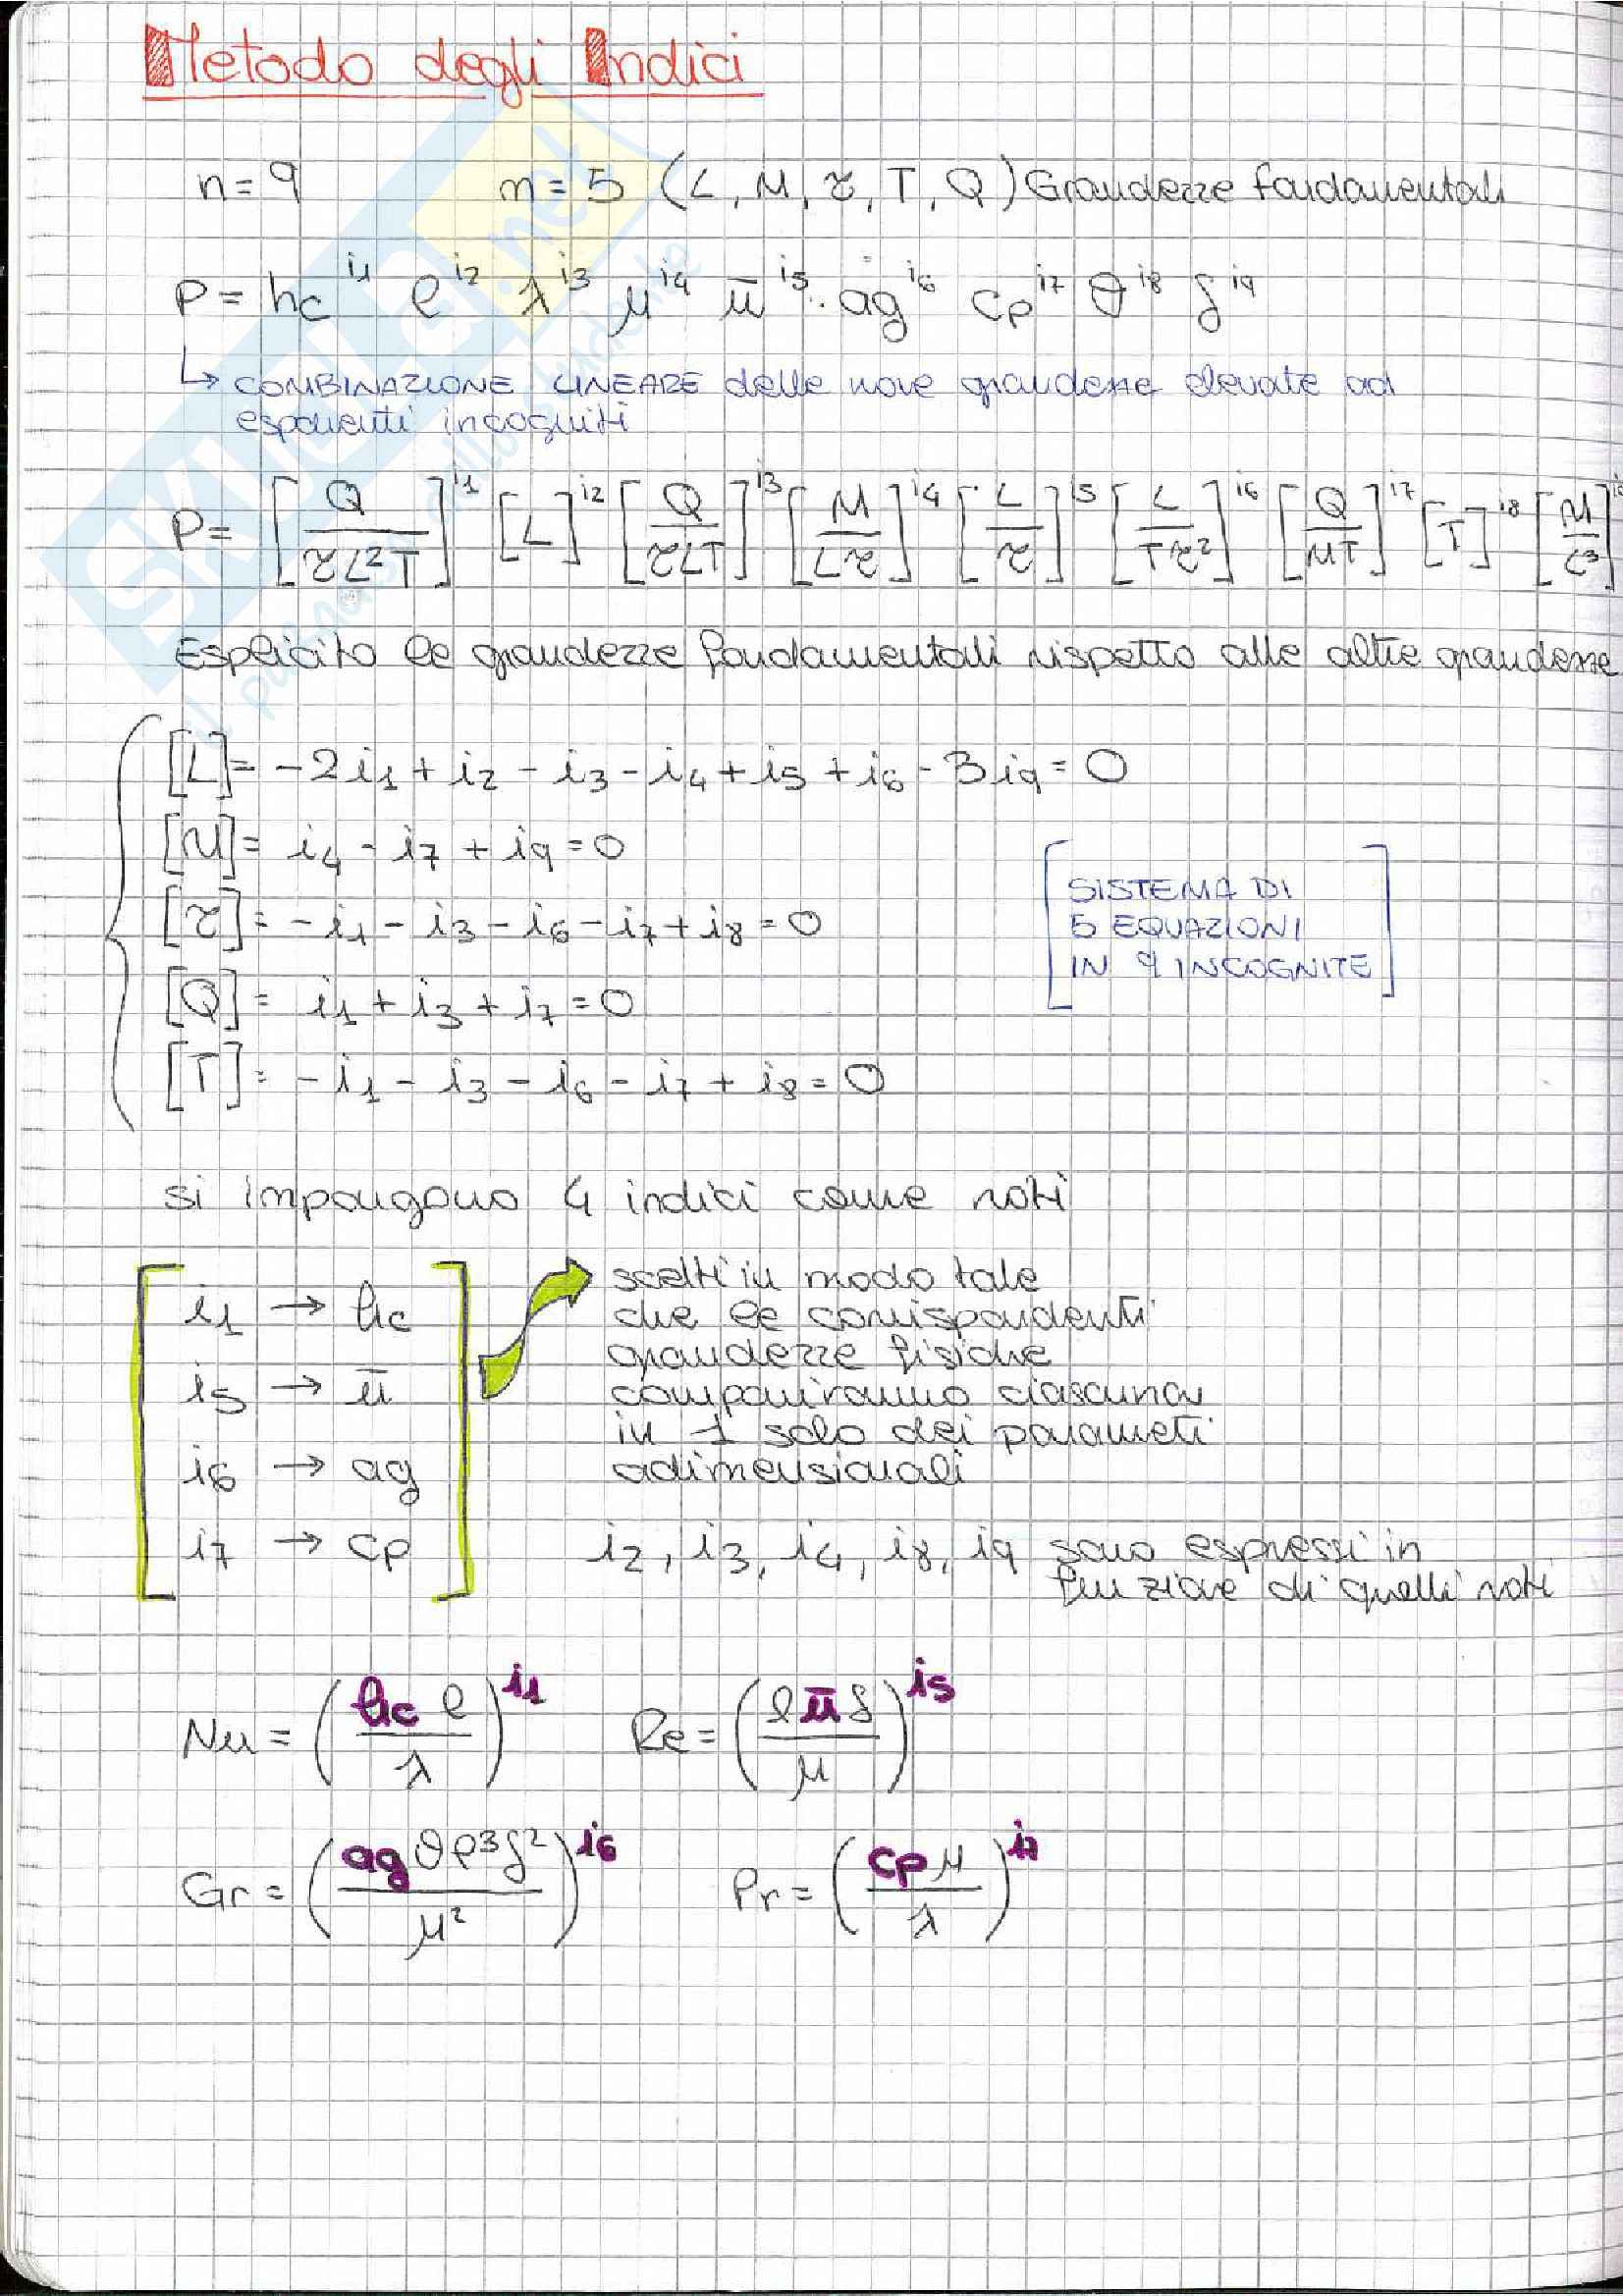 Metodo degli Indici
n=9 m=5 (L, M, τ, T, Q) Grandezze fondamentali
P= hc^i1 l^i2 λ^i3 μ^i4 ū^i5 · ag^i6 cp^i7 θ^i8 ρ^i9
↳ COMBINAZIONE LINEARE delle nove grandezze elevate ad
esponenti incogniti
P= [Q/τL²T]^i1 [L]^i2 [Q/τLT]^i3 [M/Lτ]^i4 [L/τ]^i5 [L/Tτ²]^i6 [Q/MT]^i7 [T]^i8 [M/L³]
Esplicito le grandezze fondamentali rispetto alle altre grandezze
[L]= -2i1 + i2 - i3 - i4 + i5 + i6 - 3i9 = 0
[M]= i4 - i7 + i9 = 0
[τ]= -i1 - i3 - i6 - i7 + i8 = 0
[Q]= i1 + i3 + i7 = 0
[T]= -i1 - i3 - i6 - i7 + i8 = 0
[SISTEMA DI
5 EQUAZIONI
IN 9 INCOGNITE]
si impongono 4 indici come noti
i1 → hc
i5 → ū
i6 → ag
i7 → cp
scelti in modo tale
che le corrispondenti
grandezze fisiche
compariranno ciascuna
in 1 solo dei parametri
adimensionali
i2, i3, i4, i8, i9 sono espressi in
funzione di quelli noti
Nu = (hc l/λ)^i1 Re = (l ū ρ/μ)^i5
Gr = (ag θ l³ ρ²/μ²)^i6 Pr = (cp μ/λ)^i7
SKUOLA.net
il paradiso dello studente